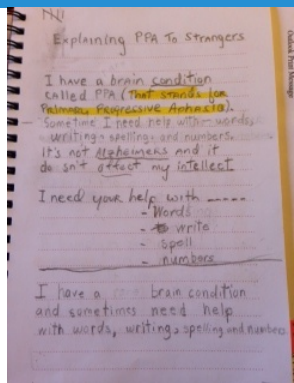 Explaining PPA To Strangers
I have a brain condition
called PPA (That stands for
Primary Progressive Aphasia).
Sometime I need help with words,
writing, spelling, and numbers.
It's not Alzheimers and it
do sn't affect my intellect.
I need your help with -----
- Words
- write
- spell
- numbers
I have a brain condition
and sometimes need help
with words, writing, spelling and numbers
Outlook Print Message